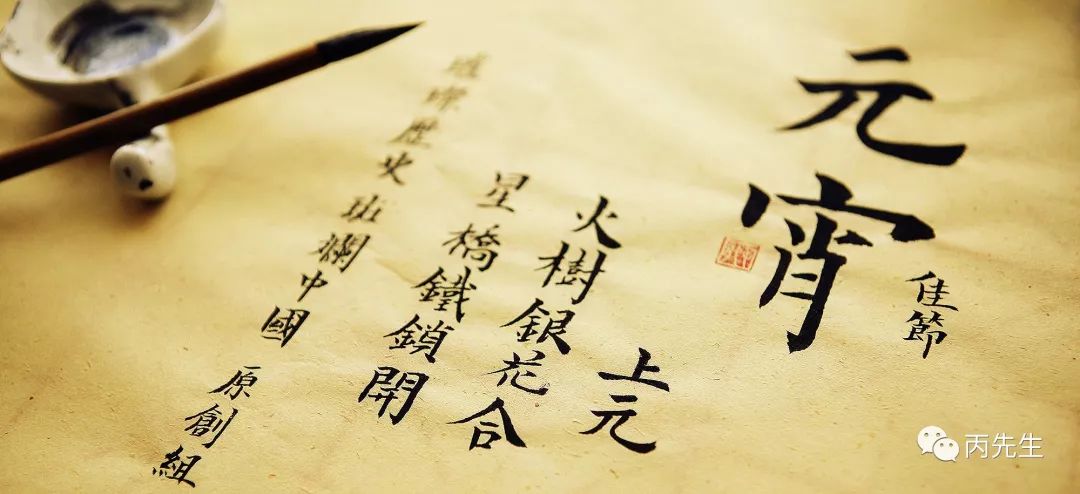 元宵
佳節
上元
火樹銀花合
星橋鐵鎖開
璀璨歷史斑斕中國 原創組
丙先生